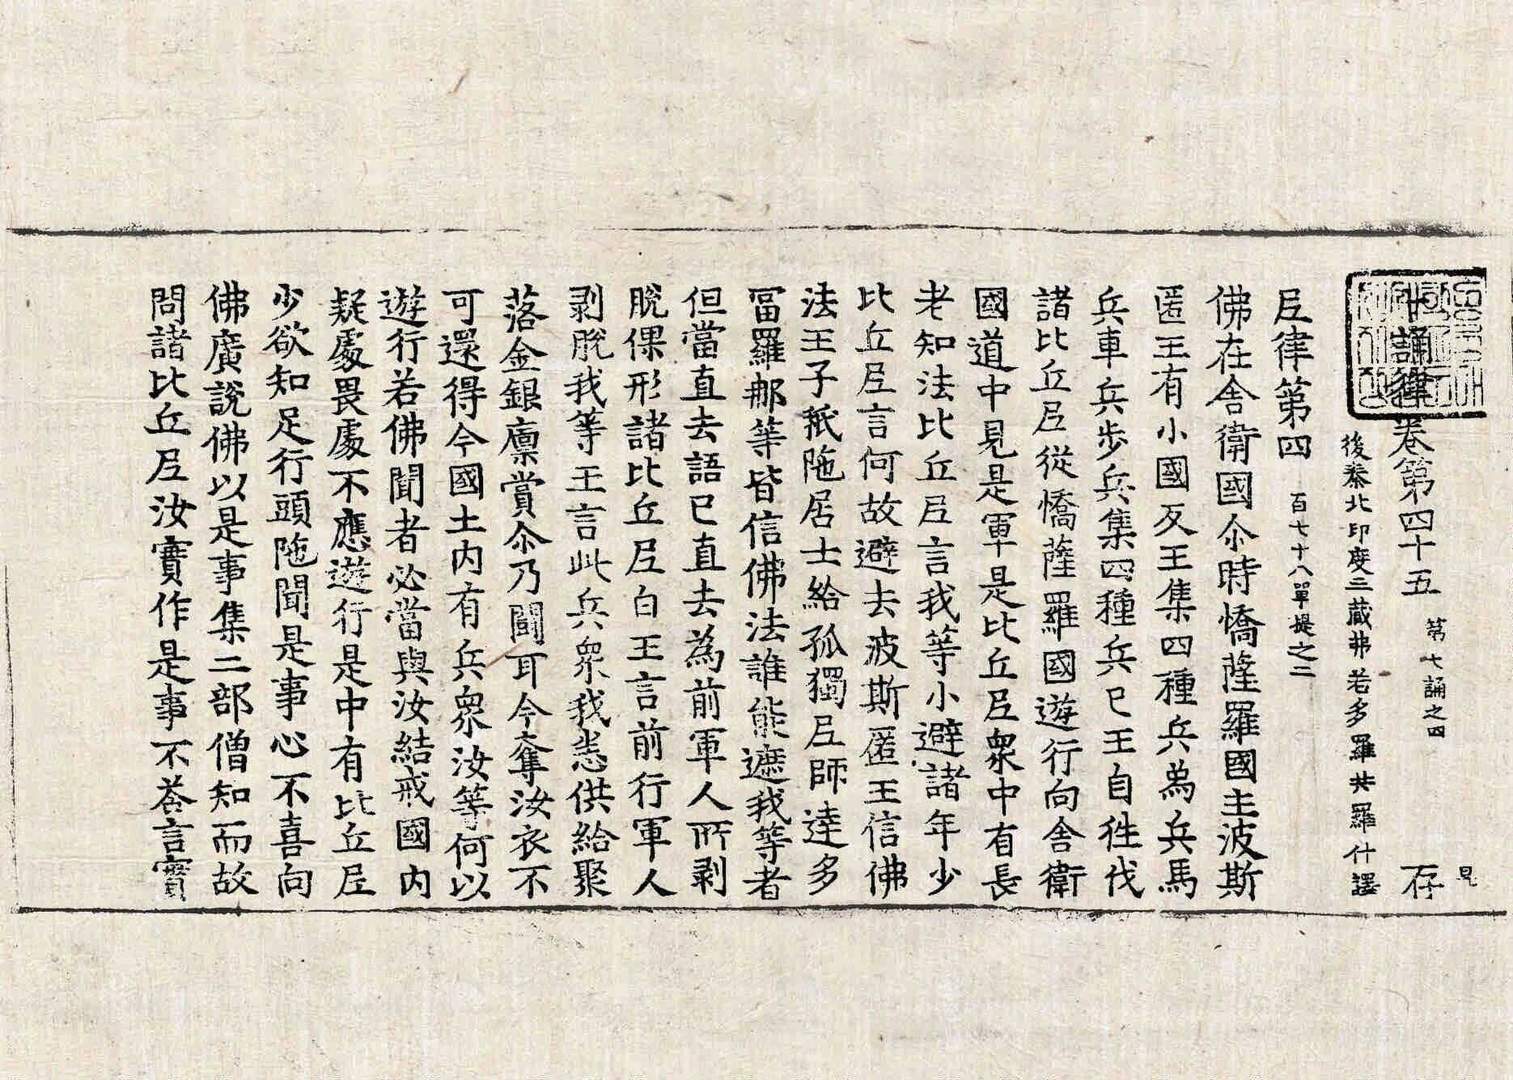 十誦律卷第四十五 第七誦之四 存
後秦北印度三藏弗若多羅共羅什譯
尼律第四 百七十八單提之二
佛在舍衛國尒時憍薩羅國主波斯
匿王有小國反王集四種兵象兵馬
兵車兵步兵集四種兵已王自往伐
諸比丘尼從憍薩羅國遊行向舍衛
國道中見是軍是比丘尼衆中有長
老知法比丘尼言我等小避諸年少
比丘尼言何故避去波斯匿王信佛
法王子祇陁居士給孤獨尼師達多
冨羅那等皆信佛法誰能遮我等者
但當直去語已直去為前軍人所剥
脫倮形諸比丘尼白王言前行軍人
剥脫我等王言此兵衆我悉供給聚
落金銀廩賞尒乃鬪耳今奪汝衣不
可還得今國土内有兵衆汝等何以
遊行若佛聞者必當與汝結戒國内
疑處畏處不應遊行是中有比丘尼
少欲知足行頭陁聞是事心不喜向
佛廣說佛以是事集二部僧知而故
問諸比丘尼汝實作是事不荅言實